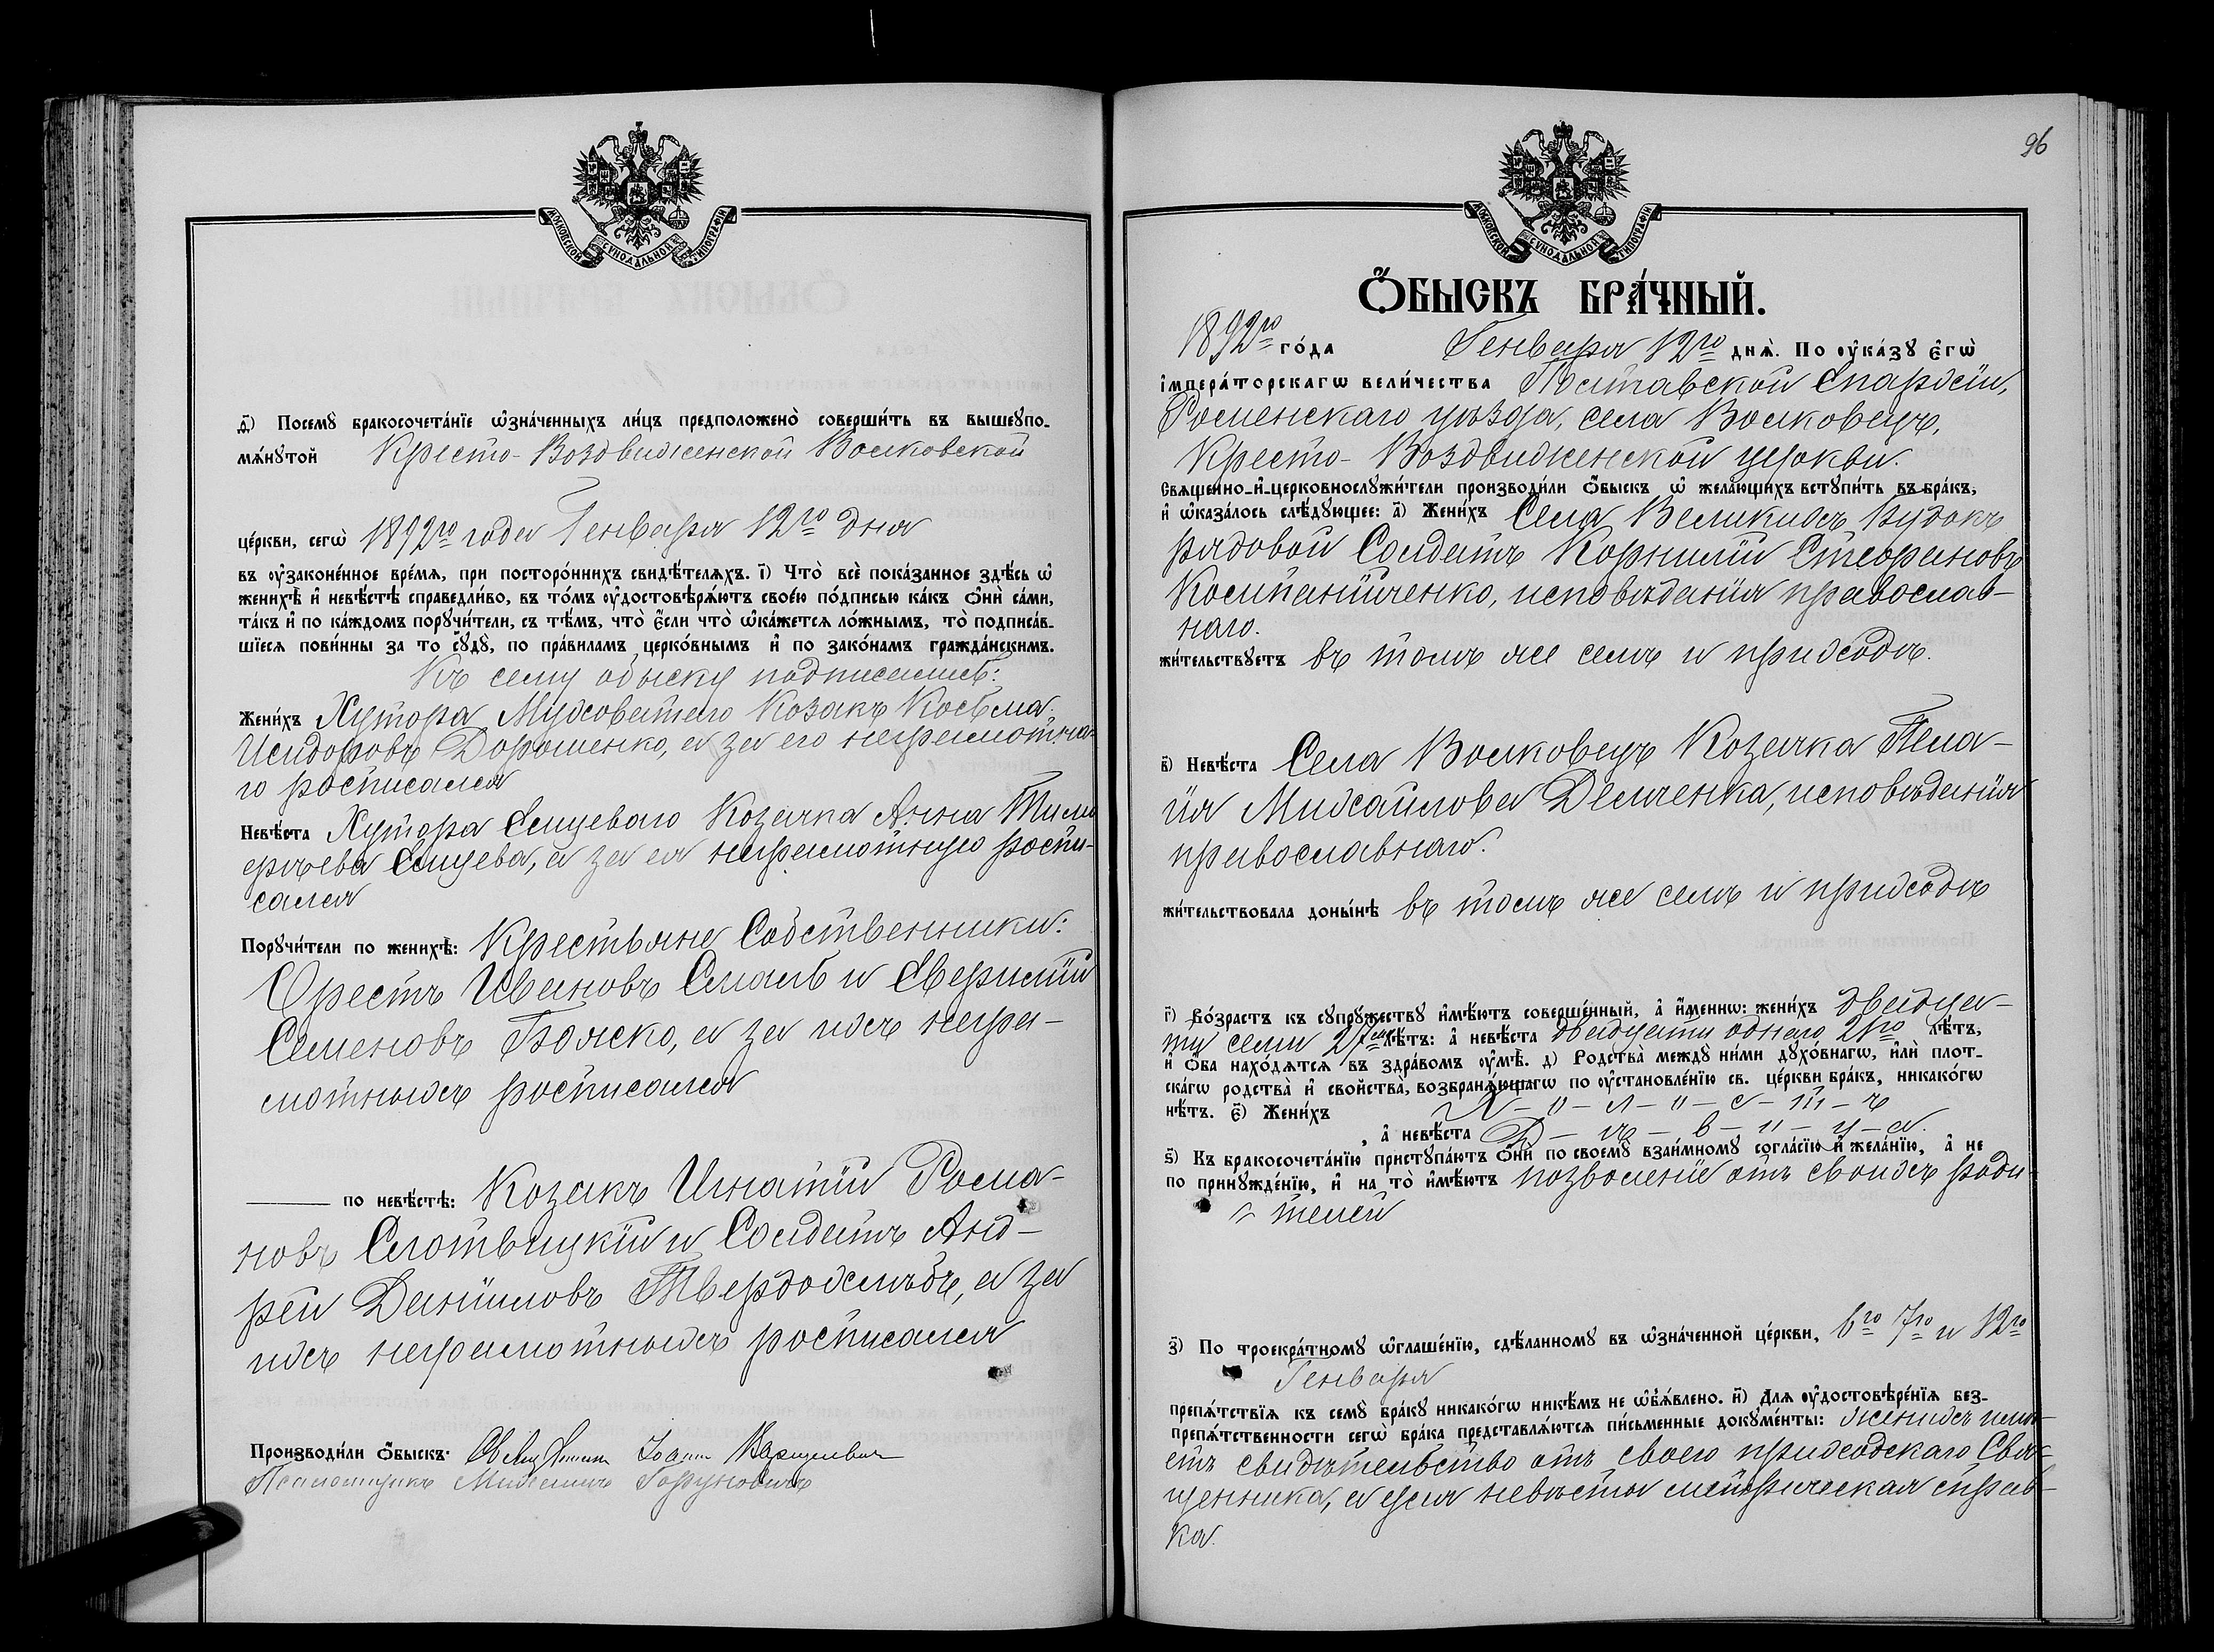 МОСКОВСКОЙ СѴНОДАЛЬНОЙ ТИПОГРАФІИ
д҃) Посемꙋ бракосочета́нїе ѡ҆зна́ченныхъ ли́цъ предположено̀ соверши́ть въ вышеꙋпо-
мѧ́нꙋтой Кресто-Воздвиженской Волковской
це́ркви, сегѡ̀ 1892го года Генваря 12го дня
въ ᲂу҆законе́нное вре́мѧ, при посторо́ннихъ свидѣ́телѧхъ. і҃) Что̀ всѐ пока́занное здѣ́сь ѡ҆
женихѣ̀ и҆ невѣ́стѣ справедли́во, въ то́мъ ᲂу҆достовѣрѧ́ютъ свое́ю по́дписью ка́къ ѻ҆нѝ са́ми,
та́къ и҆ по ка́ждомъ порꙋчи́тели, съ тѣ́мъ, что̀ є҆́сли что̀ ѡ҆ка́жетсѧ ло́жнымъ, то̀ подписа́в-
шїесѧ пови́нны за то сꙋдꙋ̀, по пра́виламъ церко́внымъ и҆ по зако́намъ гражда́нскимъ.
Къ сему обыску подписались:
Жени́хъ Хутора Муховатаго Козакъ Косьма
Исидоровъ Дорошенко, а за его неграмотна-
го росписался
Невѣ́ста Хутора Емцеваго Козачка Анна Тимо
фѣева Емцева, а за ея неграмотную роспи-
сался
Порꙋчи́тели по женихѣ̀: Крестьяне Собственники:
Орестъ Ивановъ Смаль и Сверилій
Семеновъ Божко, а за ихъ негра-
мотныхъ росписался
по невѣ́стѣ: Козакъ Игнатій Рома-
новъ Слотвицкій и Солдатъ Анд-
рей Даніиловъ Твердохлѣбъ, а за
ихъ неграмотныхъ росписался
Производи́ли ѻ҆́быскъ: Священникъ Іоаннъ
Псаломщикъ Михаилъ
96
МОСКОВСКОЙ СѴНОДАЛЬНОЙ ТИПОГРАФІИ
Ѻ҆́БЫСКЪ БРА́ЧНЫЙ.
1892го го́да Генваря 12го днѧ̀. По ᲂу҆ка́зꙋ є҆гѡ̀
і҆мпера́торскагѡ вели́чества Полтавской Епархіи,
Роменскаго уѣзда, села Волковецъ,
Кресто-Воздвиженской церкви.
Свѧщенно-и҆-церковнослꙋжи́тели производи́ли ѻ҆́быскъ ѡ҆ жела́ющихъ встꙋпи́ть въ бра́къ,
и҆ ѡ҆каза́лось слѣ́дꙋющее: а҃) Жени́хъ Села Великихъ Будокъ
рядовой Солдатъ Корнилій Стефановъ
Костаніиченко, исповѣданія православ-
наго.
жи́тельствꙋетъ въ томъ же селѣ и приходѣ.
в҃) Невѣ́ста Села Волковецъ Козачка Пела-
гія Михайлова Демченка, исповѣданія
православнаго.
жи́тельствовала доны́нѣ въ томъ же селѣ и приходѣ
г҃) Во́зрастъ къ сꙋпрꙋ́жествꙋ и҆мѣ́ютъ соверше́нный, а҆ и҆́меннѡ: жени́хъ двадца-
ти семи 27ми лѣ́тъ: а҆ невѣ́ста двадцати одного 21го лѣ́тъ,
и҆ ѻ҆́ба нахо́дѧтсѧ въ здра́вомъ ᲂу҆мѣ̀. д҃) Родства̀ междꙋ̀ ни́ми дꙋхо́внагѡ, и҆лѝ плот-
ска́гѡ родства̀ и҆ свойства̀, возбранѧ́ющагѡ по ᲂу҆становле́нїю св. це́ркви бра́къ, никако́гѡ
нѣ́тъ. є҃) Жени́хъ Х-о-л-о-с-т-ъ
, а҆ невѣ́ста Д-ѣ-в-и-ц-а.
ѕ҃) Къ бракосочета́нїю пристꙋпа́ютъ ѻ҆нѝ по своемꙋ̀ взаи́мномꙋ согла́сїю и҆ жела́нїю, а҆ не
по принꙋжде́нїю, и҆ на то̀ и҆мѣ́ютъ позволеніе отъ своихъ роди-
телей
з҃) По троекра́тномꙋ ѡ҆глаше́нїю, сдѣ́ланномꙋ въ ѡ҆зна́ченной це́ркви, 6го 7го и 12го
Генваря
препѧ́тствїѧ къ семꙋ̀ бра́кꙋ никако́гѡ никѣ́мъ не ѡ҆б̾ѧ́влено. и҃) Для ᲂу҆достовѣре́нїѧ без-
препѧ́тственности сегѡ̀ бра́ка представлѧ́ютсѧ пи́сьменные докꙋме́нты: женихъ имѣ-
етъ свидѣтельство отъ своего приходскаго Свя-
щенника, а для невѣсты метрическая справ-
ка.